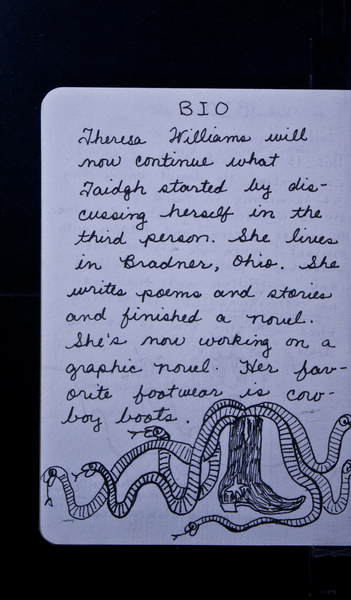 BIO
Theresa Williams will
now continue what
Taidgh started by dis-
cussing herself in the
third person. She lives
in Bradner, Ohio. She
writes poems and stories
and finished a novel.
She's now working on a
graphic novel. Her fav-
orite footwear is cow-
boy boots.